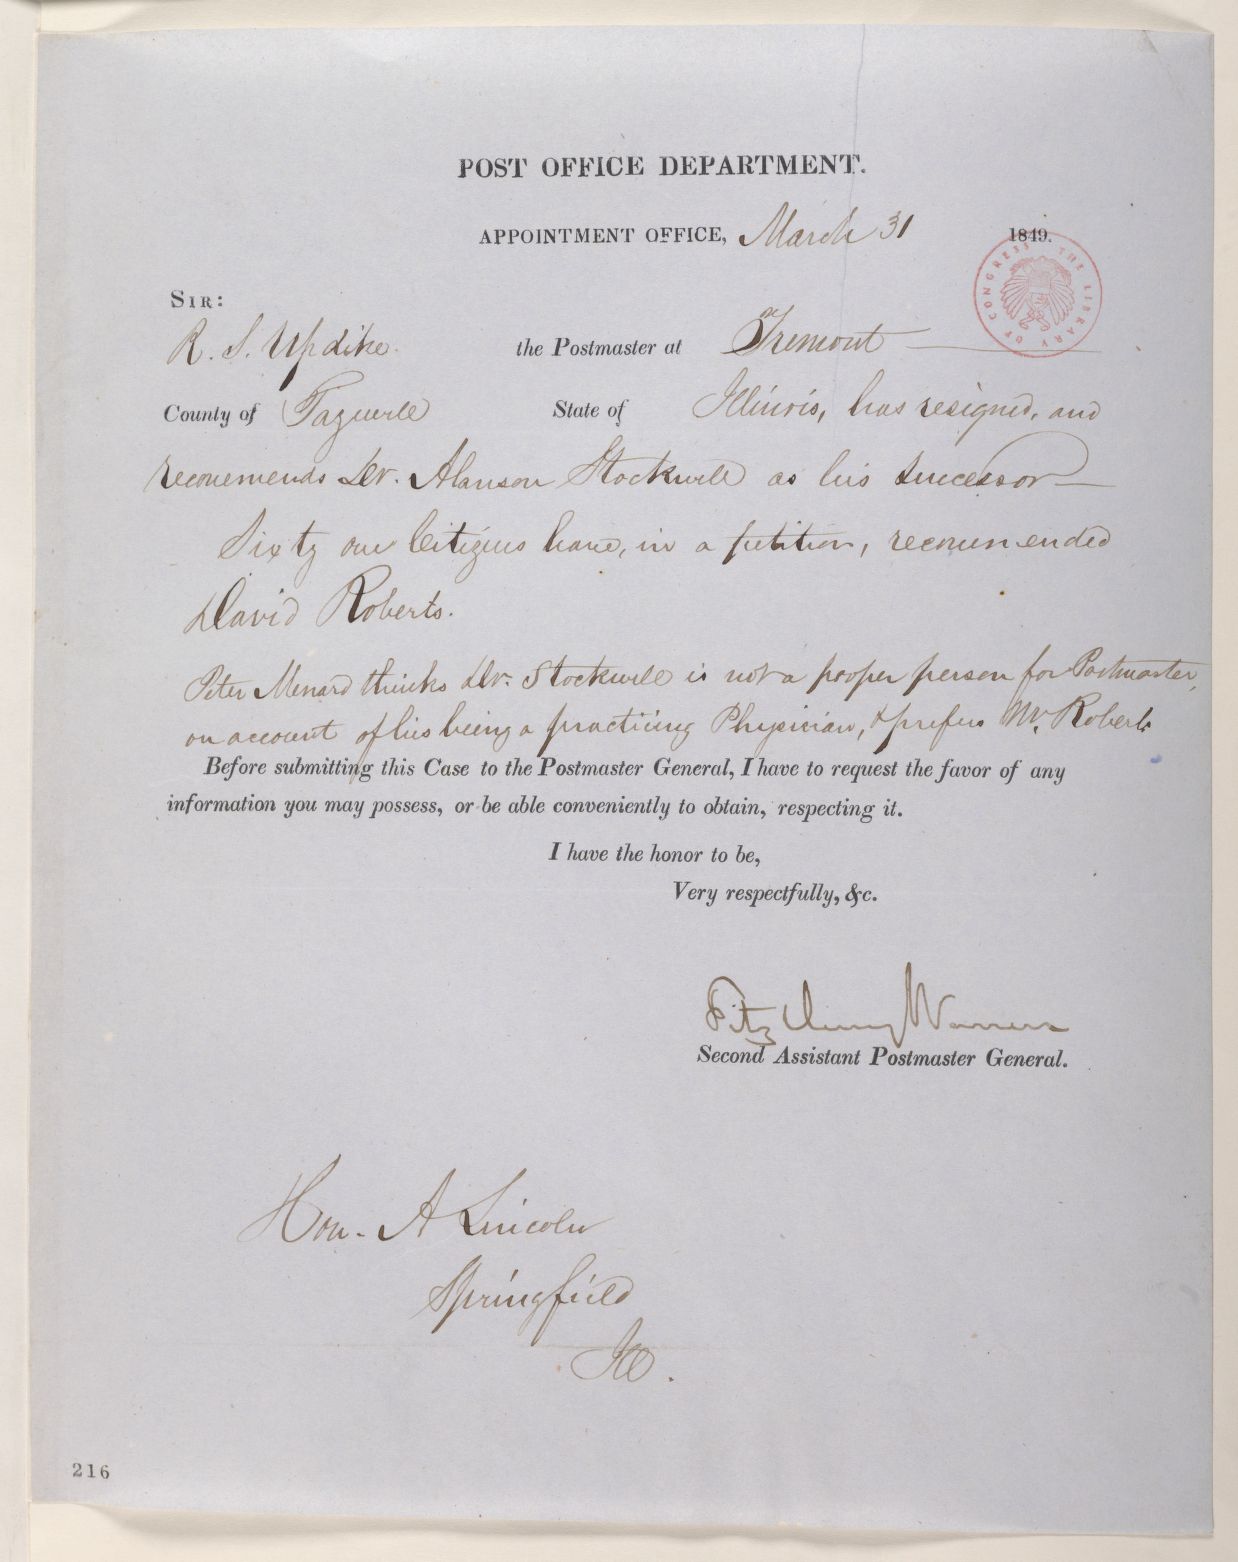 POST OFFICE DEPARTMENT.
APPOINTMENT OFFICE, March 31 1849.
SIR:
R. S. Updike the Postmaster at Tremont
County of Tazwell State of Illinois, has resigned, and
recommends Dr. Alanson Stockwell as his successor
Sixty one Citizens have, in a petition, recommended
David Roberts.
Peter Menard thinks Dr. Stockwell is not a proper person for Postmaster,
on account of his being a practicing Physician, & prefers Mr. Roberts
Before submitting this Case to the Postmaster General, I have to request the favor of any
information you may possess, or be able conveniently to obtain, respecting it.
I have the honor to be,
Very respectfully, &c.
Fitz Henry Warren
Second Assistant Postmaster General.
Hon. A Lincoln
Springfield
Ill.
216
THE LIBRARY OF CONGRESS